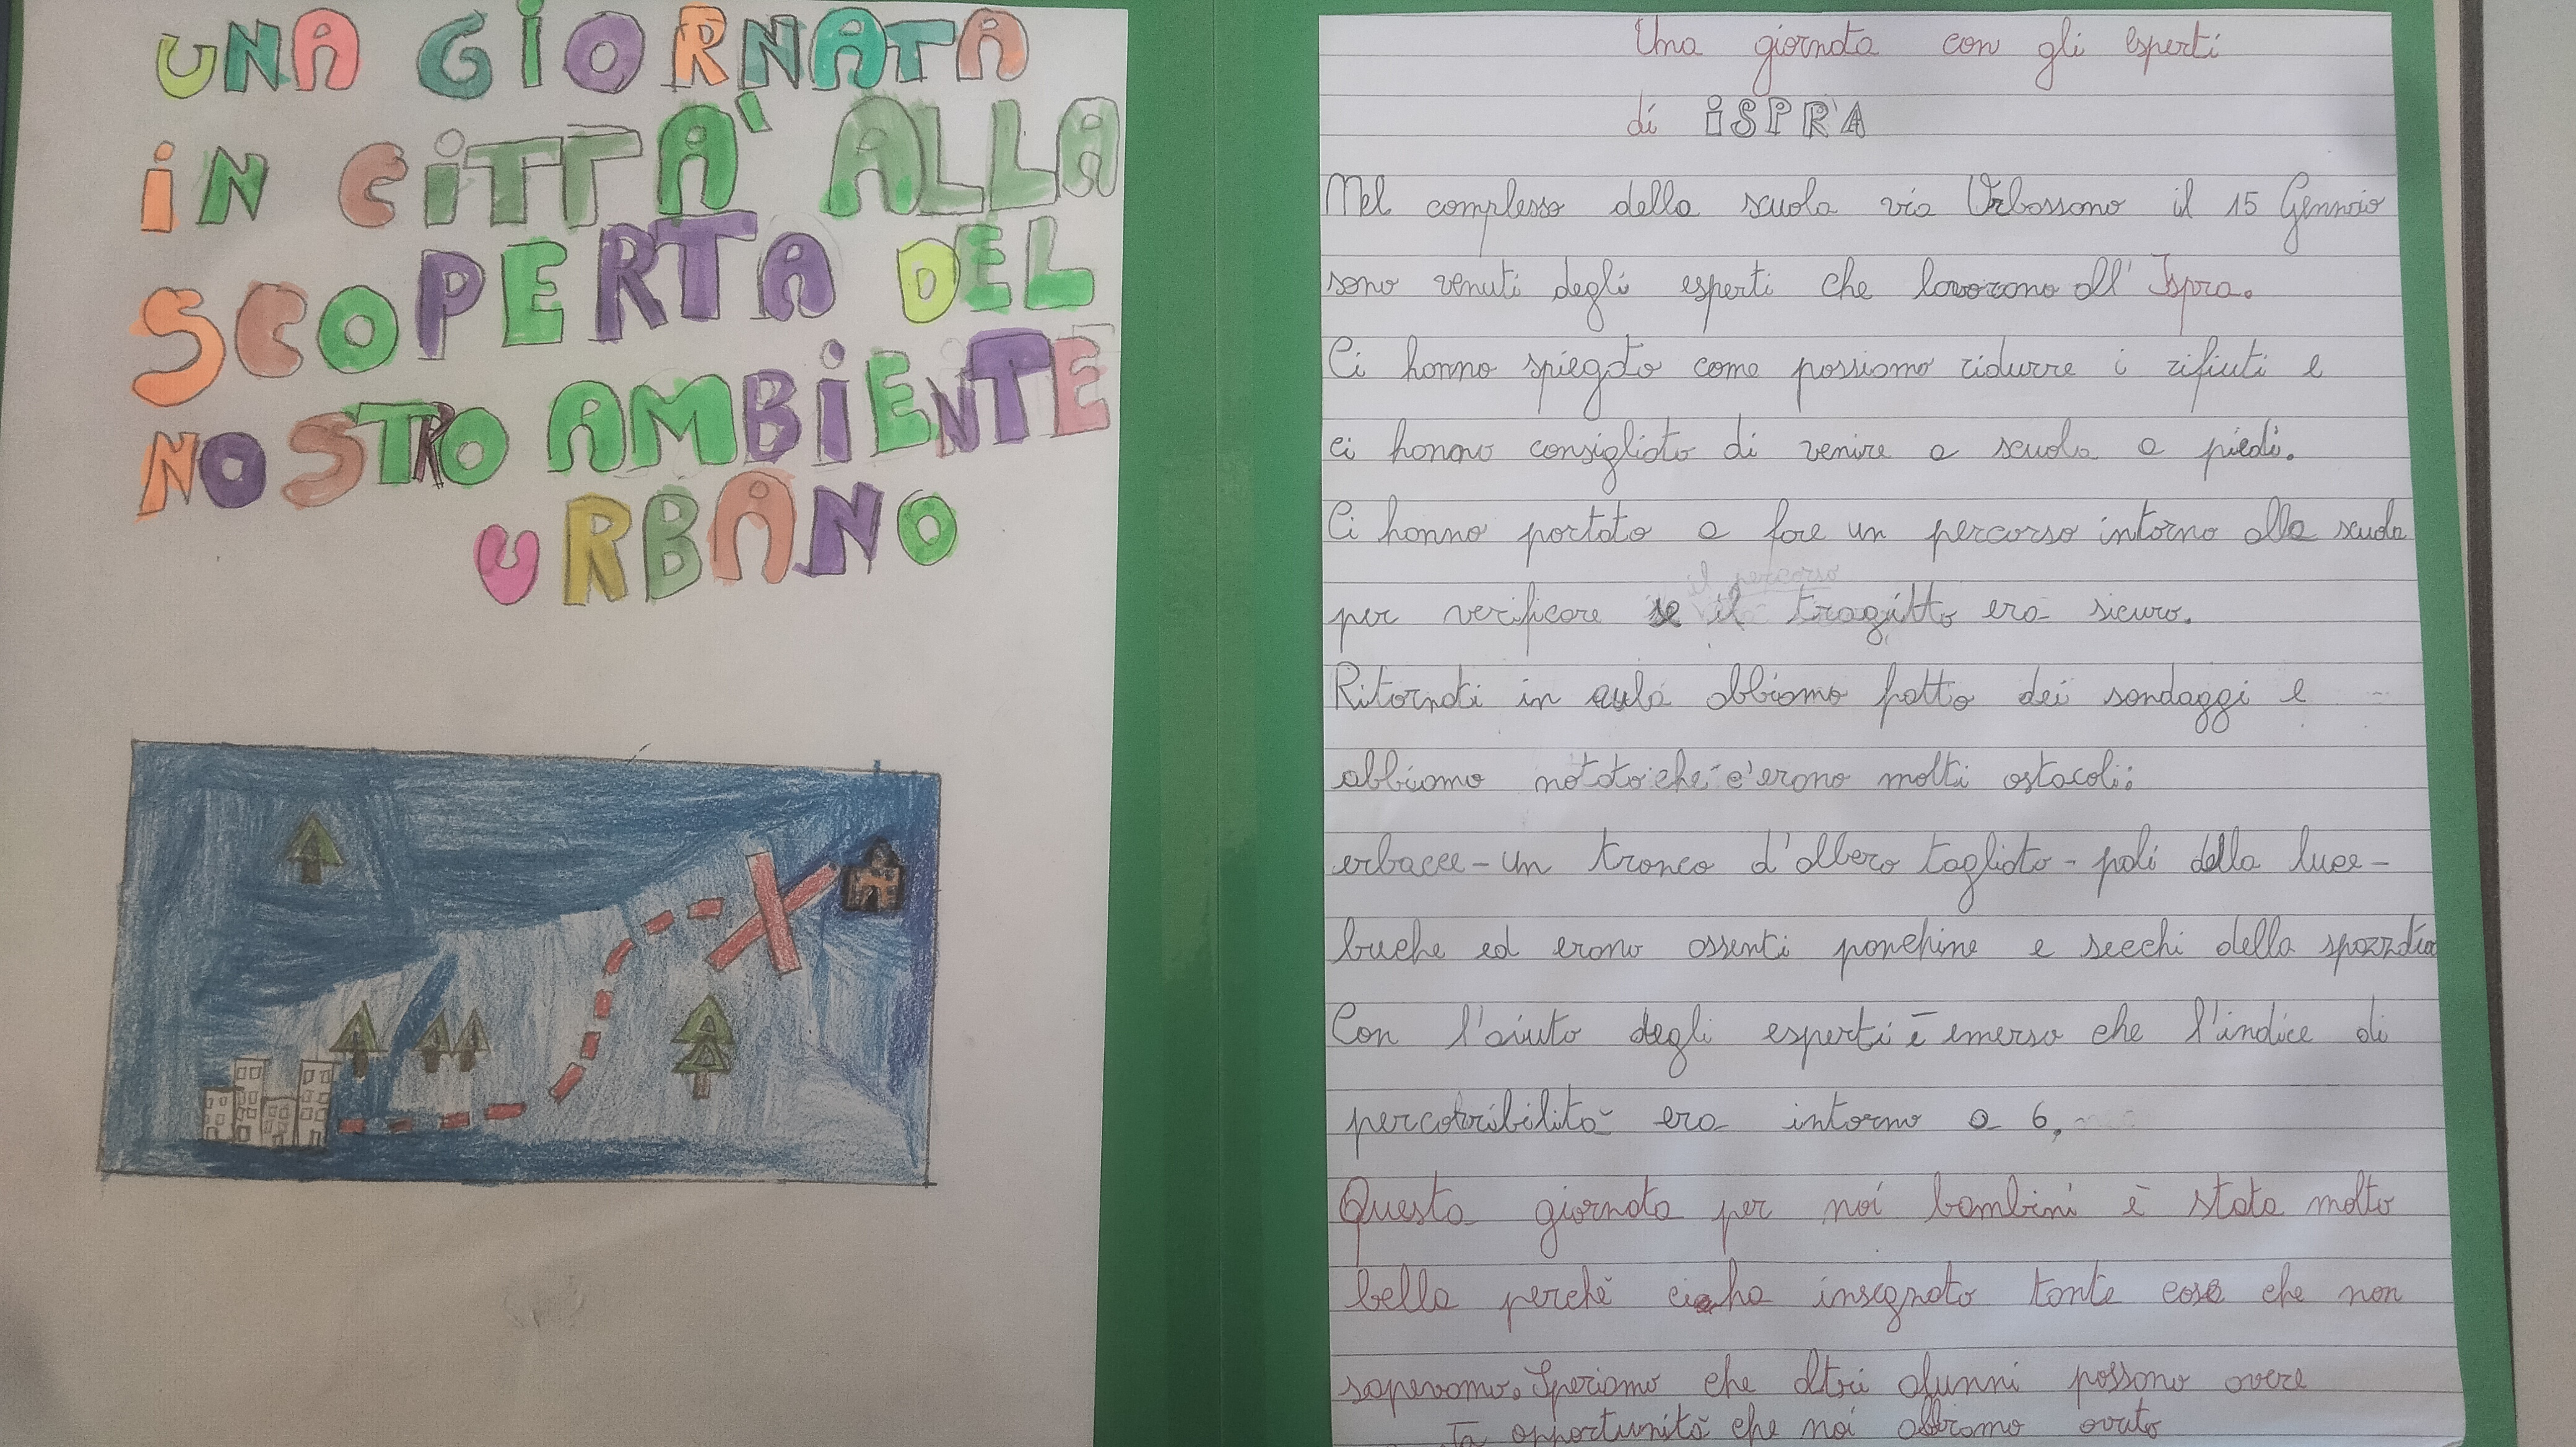 UNA GIORNATA
IN CITTA' ALLA
SCOPERTA DEL
NOSTRO AMBIENTE
URBANO
Una giornata con gli esperti
di ISPRA
Nel complesso della scuola via Urbassano il 15 Gennaio
sono venuti degli esperti che lavorano all'Ispra.
Ci hanno spiegato come possiamo ridurre i rifiuti e
ci hanno consigliato di venire a scuola a piedi.
Ci hanno portato a fare un percorso intorno alla scuola
il percorso
per verificare se il tragitto era sicuro.
Ritornati in aula abbiamo fatto dei sondaggi e
abbiamo notato che c'erano molti ostacoli:
erbacce - un tronco d'albero tagliato - pali della luce -
buche ed erano assenti panchine e secchi della spazzatura
Con l'aiuto degli esperti è emerso che l'indice di
era intorno a 6,
Questa giornata per noi bambini è stata molto
bella perché ci ha insegnato tante cose che non
sapevamo. Speriamo che altri alunni possono avere
opportunità che noi abbiamo avuto